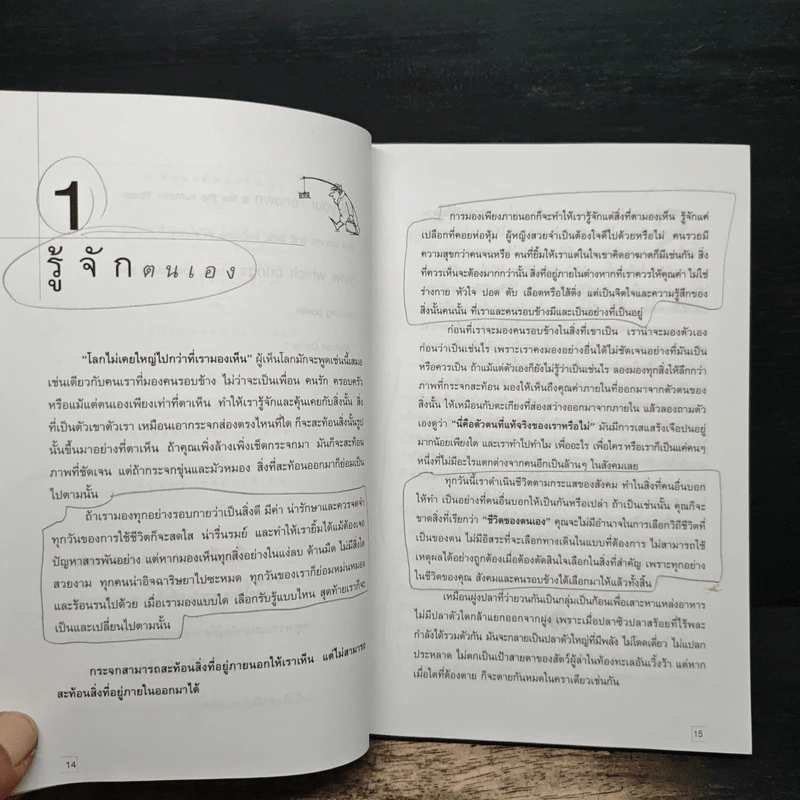 1
รู้จักตนเอง
"โลกไม่เคยใหญ่ไปกว่าที่เรามองเห็น" ผู้เห็นโลกมักจะพูดเช่นนี้เสมอ
เช่นเดียวกับคนเราที่มองคนรอบข้าง ไม่ว่าจะเป็นเพื่อน คนรัก ครอบครัว
หรือแม้แต่ตนเองเพียงเท่าที่ตาเห็น ทำให้เรารู้จักและคุ้นเคยกับสิ่งนั้น สิ่ง
ที่เป็นตัวเขาตัวเรา เหมือนเอากระจกส่องตรงไหนที่ใด ก็จะสะท้อนสิ่งนั้นรูป
นั้นขึ้นมาอย่างที่ตาเห็น ถ้าคุณเพิ่งล้างเพิ่งเช็ดกระจกมา มันก็จะสะท้อน
ภาพที่ชัดเจน แต่ถ้ากระจกขุ่นและมัวหมอง สิ่งที่สะท้อนออกมาก็ย่อมเป็น
ไปตามนั้น
ถ้าเรามองทุกอย่างรอบกายว่าเป็นสิ่งดี มีค่า น่ารักษาและควรจดจำ
ทุกวันของการใช้ชีวิตก็จะสดใส น่ารื่นรมย์ และทำให้เรายิ้มได้แม้ต้องเจอ
ปัญหาสารพันอย่าง แต่หากมองเห็นทุกสิ่งอย่างในแง่ลบ ด้านมืด ไม่มีสิ่งใด
สวยงาม ทุกคนน่าอิจฉาริษยาไปซะหมด ทุกวันของเราก็ย่อมหม่นหมอง
และร้อนรนไปด้วย เมื่อเรามองแบบใด เลือกรับรู้แบบไหน สุดท้ายเราก็จะ
เป็นและเปลี่ยนไปตามนั้น
กระจกสามารถสะท้อนสิ่งที่อยู่ภายนอกให้เราเห็น แต่ไม่สามารถ
สะท้อนสิ่งที่อยู่ภายในออกมาได้
14
การมองเพียงภายนอกก็จะทำให้เรารู้จักแต่สิ่งที่ตามองเห็น รู้จักแค่
เปลือกที่คอยห่อหุ้ม ผู้หญิงสวยจำเป็นต้องใจดีไปด้วยหรือไม่ คนรวยมี
ความสุขกว่าคนจนหรือ คนที่ยิ้มให้เราแต่ในใจเขาคิดอาฆาตก็มีเช่นกัน สิ่ง
ที่ควรเห็นจะต้องมากกว่านั้น สิ่งที่อยู่ภายในต่างหากที่เราควรให้คุณค่า ไม่ใช่
ร่างกาย หัวใจ ปอด ตับ เลือดหรือไส้ติ่ง แต่เป็นจิตใจและความรู้สึกของ
สิ่งนั้นคนนั้น ที่เราและคนรอบข้างมีและเป็นอย่างที่เป็นอยู่
ก่อนที่เราจะมองคนรอบข้างในสิ่งที่เขาเป็น เราน่าจะมองตัวเอง
ก่อนว่าเป็นเช่นไร เพราะเราคงมองอย่างอื่นได้ไม่ชัดเจนอย่างที่มันเป็น
หรือควรเป็น ถ้าแม้แต่ตัวเองก็ยังไม่รู้ว่าเป็นเช่นไร ลองมองทุกสิ่งให้ลึกกว่า
ภาพที่กระจกสะท้อน มองให้เห็นถึงคุณค่าภายในที่ออกมาจากตัวตนของ
สิ่งนั้น ให้เหมือนกับตะเกียงที่ส่องสว่างออกมาจากภายใน แล้วลองถามตัว
เองดูว่า "นี่คือตัวตนที่แท้จริงของเราหรือไม่" มันมีการเสแสร้งเจือปนอยู่
มากน้อยเพียงใด และเราทำไปทำไม เพื่ออะไร เพื่อใคร หรือเราก็เป็นแค่คนๆ
หนึ่งที่ไม่มีอะไรแตกต่างจากคนอีกเป็นล้านๆ ในสังคมเลย
ทุกวันนี้เราดำเนินชีวิตตามกระแสของสังคม ทำในสิ่งที่คนอื่นบอก
ให้ทำ เป็นอย่างที่คนอื่นบอกให้เป็นกันหรือเปล่า ถ้าเป็นเช่นนั้น คุณก็จะ
ขาดสิ่งที่เรียกว่า "ชีวิตของตนเอง" คุณจะไม่มีอำนาจในการเลือกวิถีชีวิตที่
เป็นของตน ไม่มีอิสระที่จะเลือกทางเดินในแบบที่ต้องการ ไม่สามารถใช้
เหตุผลได้อย่างถูกต้องเมื่อต้องตัดสินใจเลือกในสิ่งที่สำคัญ เพราะทุกอย่าง
ในชีวิตของคุณ สังคมและคนรอบข้างได้เลือกมาให้แล้วทั้งสิ้น
เหมือนฝูงปลาที่ว่ายวนกันเป็นกลุ่มเป็นก้อนเพื่อเสาะหาแหล่งอาหาร
ไม่มีปลาตัวใดกล้าแยกออกจากฝูง เพราะเมื่อปลาซิวปลาสร้อยที่ไร้พละ
กำลังได้รวมตัวกัน มันจะกลายเป็นปลาตัวใหญ่ที่มีพลัง ไม่โดดเดี่ยว ไม่แปลก
ประหลาด ไม่ตกเป็นเป้าสายตาของสัตว์ผู้ล่าในท้องทะเลอันเวิ้งว้า แต่หาก
เมื่อใดที่ต้องตาย ก็จะตายกันหมดในคราเดียวเช่นกัน
15